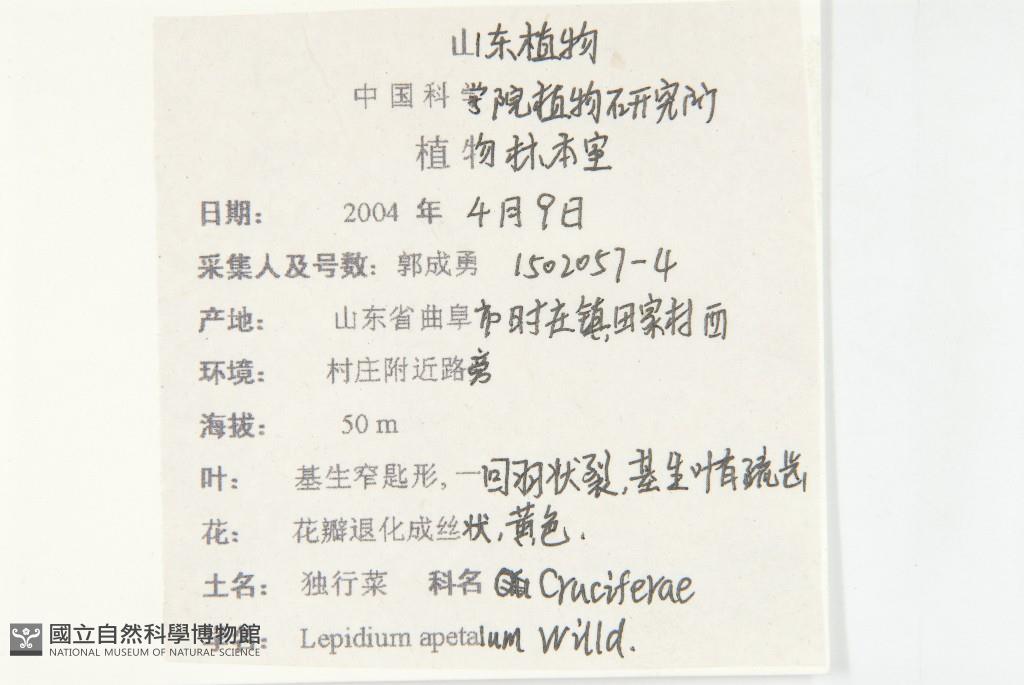 山东植物
中国科学院植物研究所
植物标本室
日期： 2004 年 4月9日
采集人及号数：郭成勇 1502057-4
产地： 山东省曲阜市时庄镇田家村西
环境： 村庄附近路旁
海拔： 50 m
叶： 基生窄匙形，一回羽状裂，基生叶有疏齿
花： 花瓣退化成丝状，黄色．
土名： 独行菜 科名 Cruciferae
Lepidium apetalum Willd.
國立自然科學博物館
NATIONAL MUSEUM OF NATURAL SCIENCE